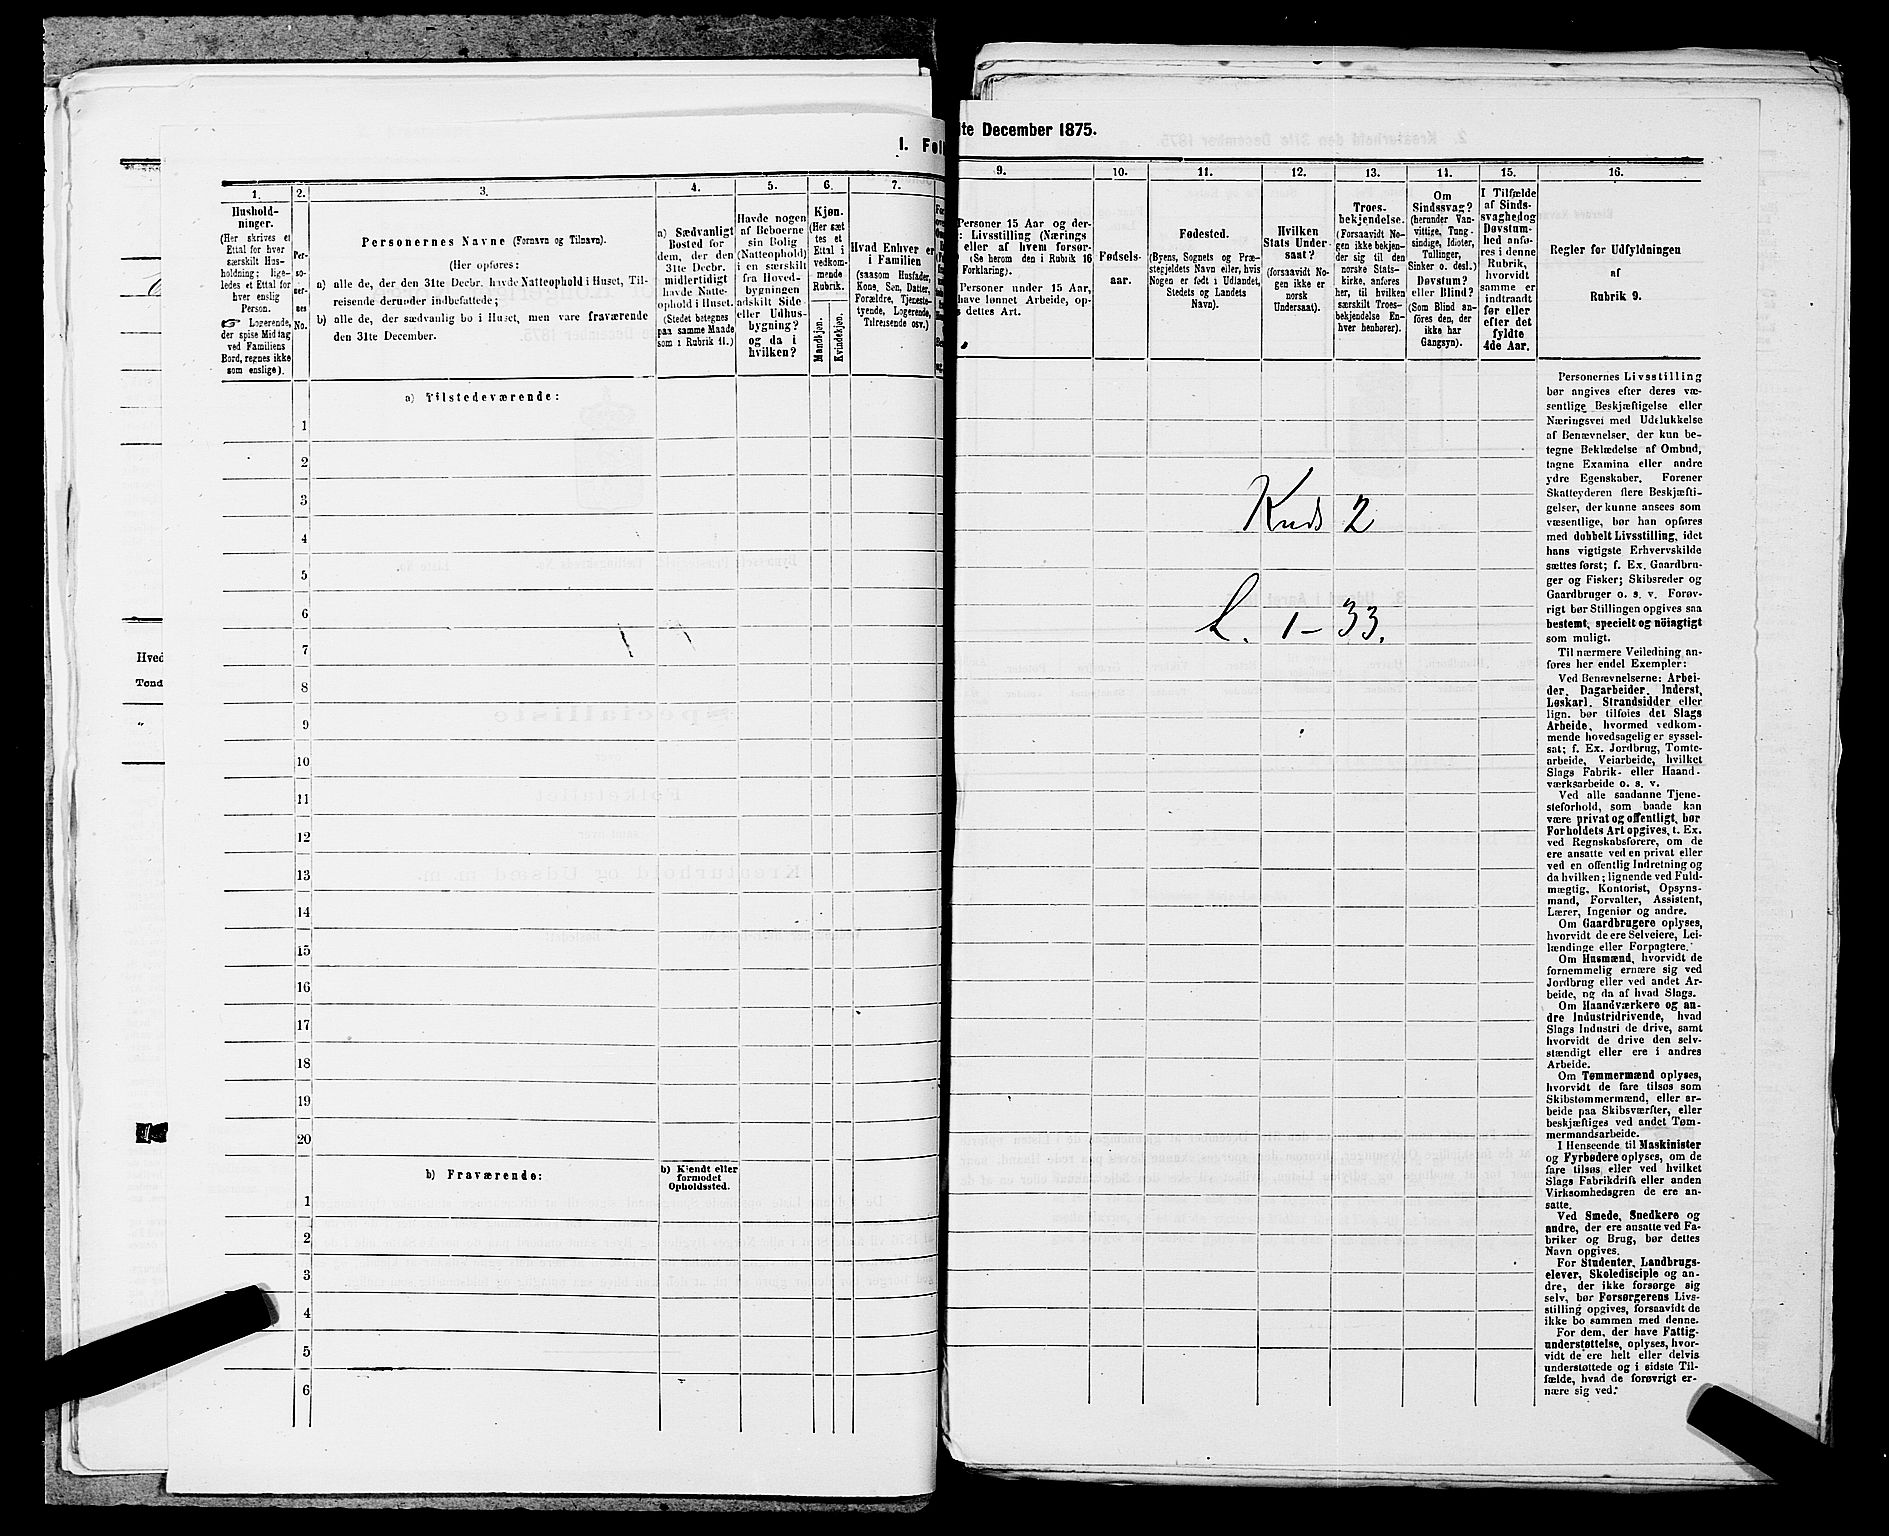 1. Fol
1.
Hushold-
ninger.
(Her skrives et
Ettal for hver
særskilt Hus-
holdning; lige-
ledes et Ettal for
hver enslig
Person.
☞ Logerende,
der spise Middag
ved Familiens
Bord, regnes ikke
som enslige).
2.
Per-
so-
ner-
nes
No.
3.
Personernes Navne (Fornavn og Tilnavn).
(Her opføres:
a) alle de, der den 31te Decbr. havde Natteophold i Huset, Til-
reisende derunder indbefattede;
b) alle de, der sædvanlig bo i Huset, men vare fraværende
den 31te December.
4.
a) Sædvanligt
Bosted for
dem, der den
31te Decbr.
midlertidigt
havde Natte-
ophold i Huset.
(Stedet betegnes
paa samme Maade
som i Rubrik 11.)
5.
Havde nogen
af Beboerne
sin Bolig
(Natteophold)
i en særskilt
fra Hoved-
bygningen
adskilt Side
eller Udhus-
bygning?
og da i
hvilken?
6.
Kjøn.
(Her sæt
tes et
Ettal i
vedkom-
mende
Rubrik.
Mandkjøn.
Kvindekjøn.
7.
Hvad Enhver er
i Familien
(saasom Husfader,
Kone, Søn, Datter,
Forældre, Tjeneste-
tyende, Logerende,
Tilreisende osv.)
a) Tilstedeværende:
1
2
3
4
5
6
7
8
9
10
11
12
13
14
15
16
17
18
19
20
b) Fraværende:
b) Kjendt eller
formodet
Opholdssted.
1
2
3
4
5
6
Hved
Tønd
"
1te December 1875.
9.
Personer 15 Aar og der-
: Livsstilling (Nærings-
eller af hvem forsør-
(Se herom den i Rubrik 16
Forklaring).
Personer under 15 Aar,
have lønnet Arbeide, op-
s dettes Art.
10.
Fødsels-
aar.
11.
Fødested.
(Byens, Sognets og Præ-
stegjeldets Navn eller, hvis
Nogen er født i Udlandet,
Stedets og Landets
Navn).
12.
Hvilken
Stats Under-
saat?
(forsaavidt No-
gen ikke er
norsk
Undersaat).
13.
Troes-
bekjendelse.
(Forsaavidt No-
gen ikke bekjen-
der sig til den
norske Stats-
kirke, anføres
her, til hvilken
særskilt Troes-
bekjendelse En-
hver henhører).
14.
Om
Sindssvag?
(herunder Van-
vittige, Tung-
sindige, Idioter,
Tullinger,
Sinker o. desl.)
Døvstum?
eller Blind?
(Som Blind an-
føres den, der
ikke har
Gangsyn).
15.
I Tilfælde
af Sinds-
svaghed og
Døvstum-
hed anfø-
res i denne
Rubrik,
hvorvidt
samme er
indtraadt
før eller
efter det
fyldte
4de Aar.
16.
Regler for Udfyldningen
af
Rubrik 9.
Kreds 2
L. 1-33.
Personernes Livsstilling
bør angives efter deres væ-
sentlige Beskjæftigelse eller
Næringsvei med Udelukkelse
af Benævnelser, der kun be-
tegne Beklædelse af Ombud,
tagne Examina eller andre
ydre Egenskaber. Forener
Skatteyderen flere Beskjæfti-
gelser, der kunne ansees som
væsentlige, bør han opføres
med dobbelt Livsstilling, idet
hans vigtigste Erhvervskilde
sættes først; f. Ex. Gaardbru-
ger og Fisker; Skibsreder og
Gaardbruger o. s. v. Forøv-
rigt bør Stillingen opgives saa
bestemt, specielt og nöiagtigt
som muligt.
Til nærmere Veiledning an-
føres her endel Exempler:
Ved Benævnelserne: Arbei-
der, Dagarbeider, Inderst,
Løskarl, Strandsidder eller
lign. bør tilføies det Slags
Arbeide, hvormed vedkom-
mende hovedsagelig er syssel-
sat; f. Ex. Jordbrug, Tomte-
arbeide, Veiarbeide, hvilket
Slags Fabrik- eller Haand-
værksarbeide o. s. v.
Ved alle saadanne Tjene-
steforhold, som baade kan
være privat og offentligt, bør
Forholdets Art opgives, t. Ex.
ved Regnskabsførere, om de
ere ansatte ved en privat eller
ved en offentlig Indretning og
da hvilken; lignende ved Fuld-
mægtig, Kontorist, Opsyns-
mand, Forvalter, Assistent,
Lærer, Ingeniør og andre.
Om Gaardbrugere oplyses,
hvorvidt de ere Selveiere, Lei-
lændinge eller Forpagtere.
Om Husmænd, hvorvidt de
fornemmelig ernære sig ved
Jordbrug eller ved andet Ar-
beide, og da af hvad Slags.
Om Haandværkere og an-
dre Industridrivende, hvad
Slags Industri de drive, samt
hvorvidt de drive den selv-
stændigt eller ere i andres
Arbeide.
Om Tømmermænd oplyses,
hvorvidt de fare tilsøs som
Skibstømmermænd, eller ar-
beide paa Skibsværfter, eller
beskjæftiges ved andet Tøm-
mermandsarbeide.
I Henseende til Maskinister
og Fyrbødere oplyses, om de
fare tilsøs, eller ved hvilket
Slags Fabrikdrift eller anden
Virksomhedsgren de ere an-
satte.
Ved Smede, Snedkere og
andre, der ere ansatte ved Fa-
briker og Brug, bør dettes
Navn opgives.
For Studenter, Landbrugs-
elever, Skoledisciple og an-
dre, der ikke forsørge sig
selv, bør Forsørgerens Livs-
stilling opgives, forsaavidt de
ikke bo sammen med denne.
For dem, der have Fattig-
understøttelse, oplyses, hvor-
vidt de ere helt eller delvis
understøttede og i sidste Til-
fælde, hvad de forøvrigt er-
nære sig ved.